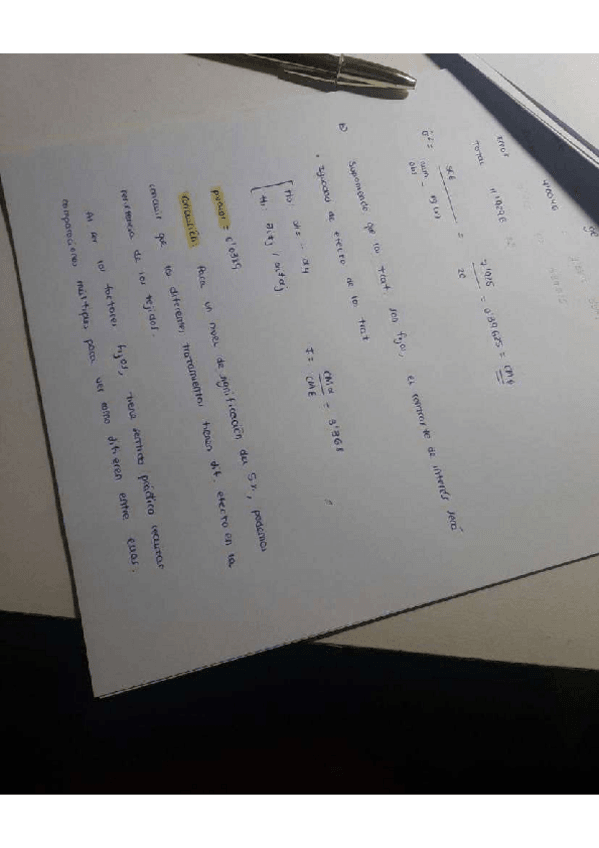 error
TOTAL 11'8296
σ̂² = SCE / num obs - gl cor = 7'925 / 20 = 0'39625 = CME
b) Suponiendo que los trat son fijos, el contraste de interés será
• Igualdad de efecto de los trat
H0: α1 = α4
H1: αi ≠ αj / i≠j
F = CMα / CME = 3'2868
pvalor = 0'0389
conclusión Para un nivel de significación del 5%, podemos
concluir que los diferentes tratamientos tienen dif. efecto en la
resistencia de los tejidos.
Al ser los factores fijos, tiene sentido práctico realizar
comparaciones múltiples para ver como difieren entre ellos.